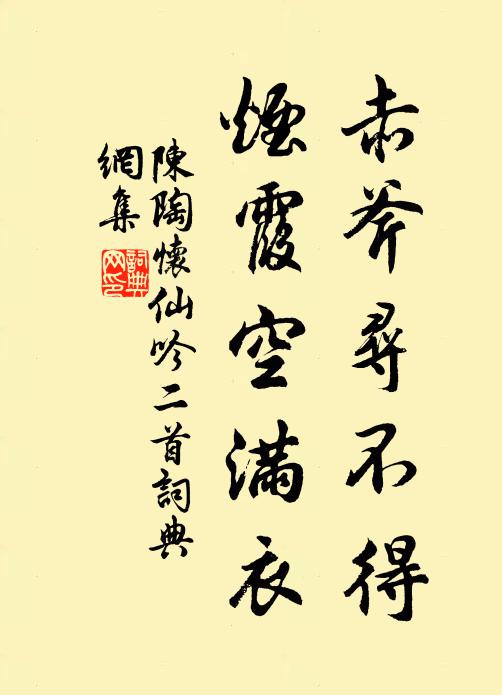 赤斧尋不得
煙霞空滿衣
陳陶懷仙吟二首詞典
網集
詞典
网印